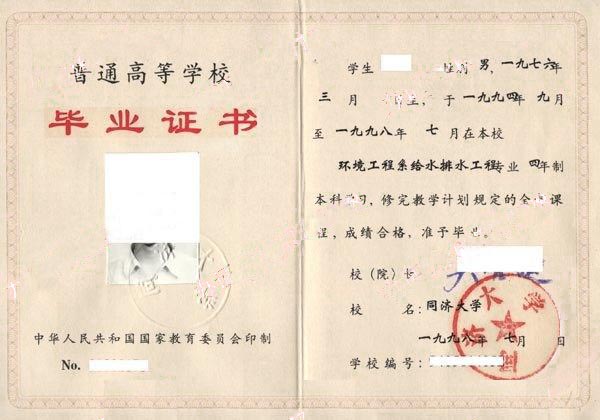 普通高等学校
毕业证书
中华人民共和国国家教育委员会印制
No.
学生 性别 男, 一九七六年
三月 日生, 于一九九四年九月
至一九九八年七月在本校
环境工程系给水排水工程专业 四年制
本科学习, 修完教学计划规定的全部课
程, 成绩合格, 准予毕业。
校(院)长
校 名: 同济大学
一九九八年七月 日
学校编号:
同济大学